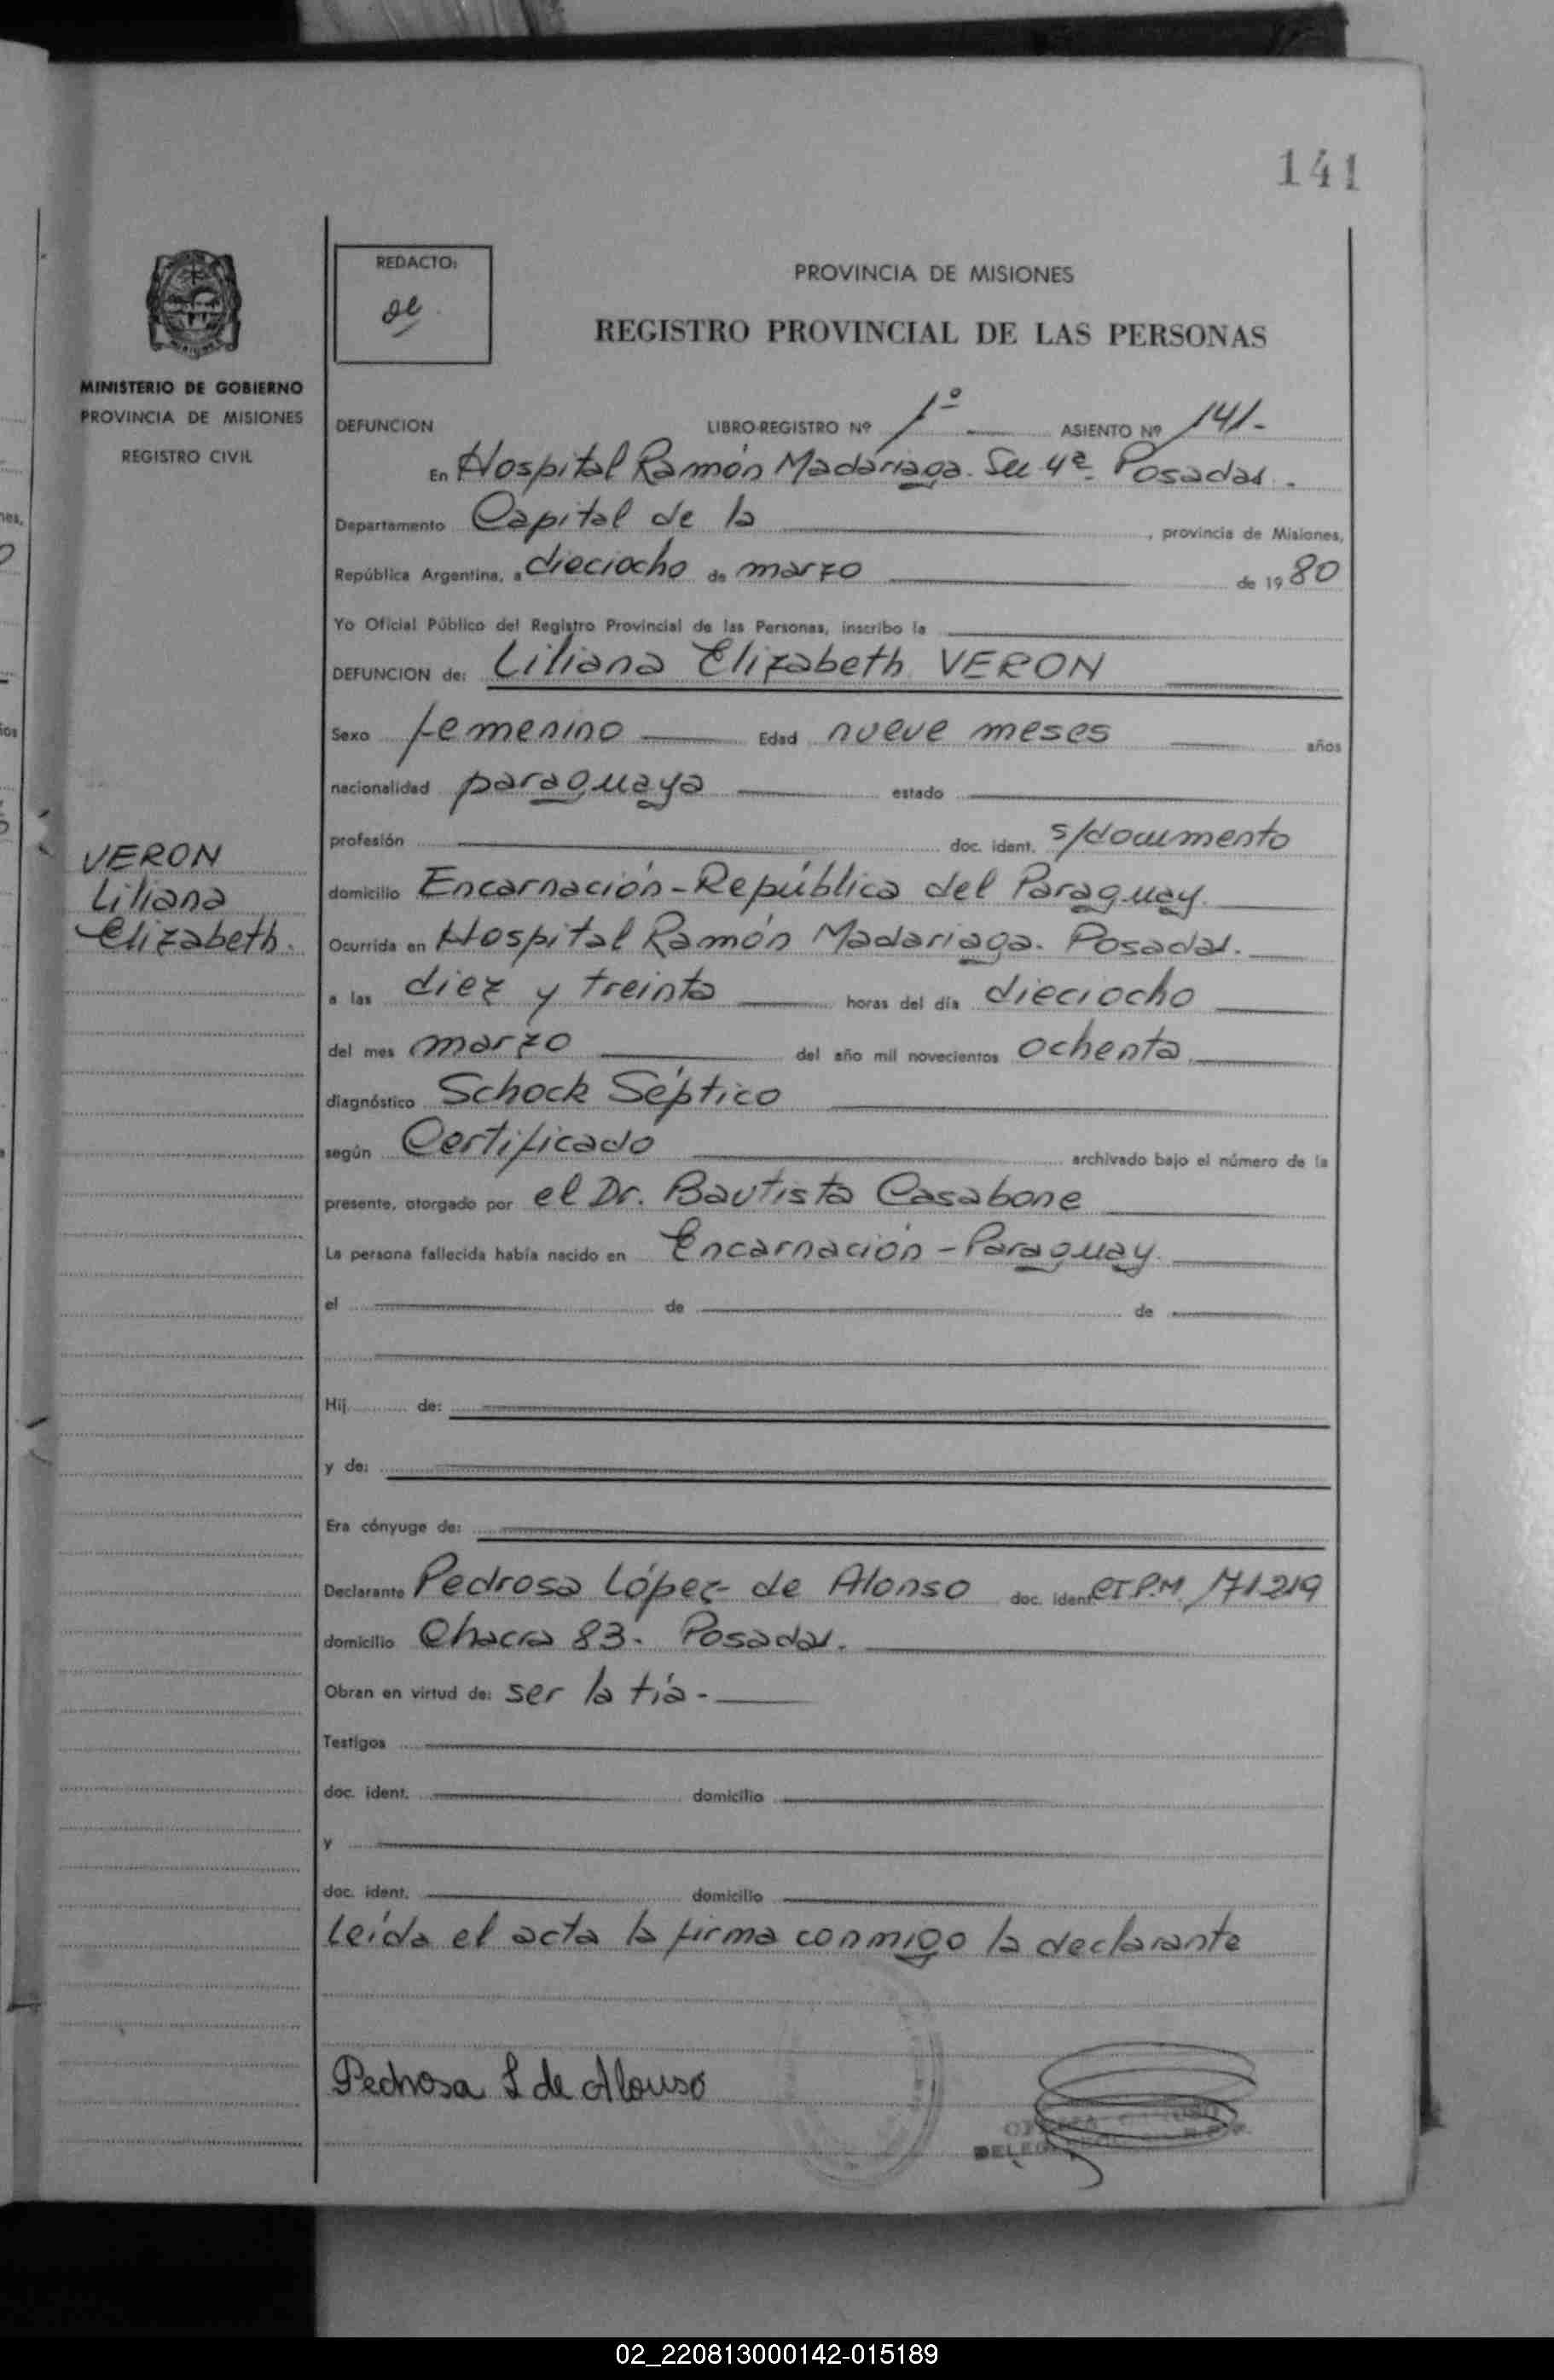 141
REDACTO:
PROVINCIA DE MISIONES
REGISTRO PROVINCIAL DE LAS PERSONAS
MINISTERIO DE GOBIERNO
PROVINCIA DE MISIONES
REGISTRO CIVIL
DEFUNCION LIBRO-REGISTRO Nº 1º ASIENTO Nº 141-
En Hospital Ramón Madariaga. Sec 4ª Posadas.
Departamento Capital de la , provincia de Misiones,
República Argentina, a dieciocho de marzo de 19 80
Yo Oficial Público del Registro Provincial de las Personas, inscribo la
DEFUNCION de: Liliana Elizabeth VERON
Sexo femenino Edad nueve meses años
nacionalidad paraguaya estado
profesión doc. ident. s/documento
VERON
Liliana
Elizabeth.
domicilio Encarnación - República del Paraguay.
Ocurrida en Hospital Ramón Madariaga. Posadas.
a las diez y treinta horas del día dieciocho
del mes marzo del año mil novecientos ochenta
diagnóstico Schock Séptico
según Certificado archivado bajo el número de la
presente, otorgado por el Dr. Bautista Casabone
La persona fallecida había nacido en Encarnación - Paraguay.
el de de
Hij de:
y de:
Era cónyuge de:
Declarante Pedrosa López de Alonso doc. ident. CI P.M. 171219
domicilio Chacra 83. Posadas.
Obran en virtud de: ser la tía-
Testigos
doc. ident. domicilio
y
doc. ident. domicilio
Leída el acta la firma conmigo la declarante
Pedrosa L de Alonso
02_220813000142-015189